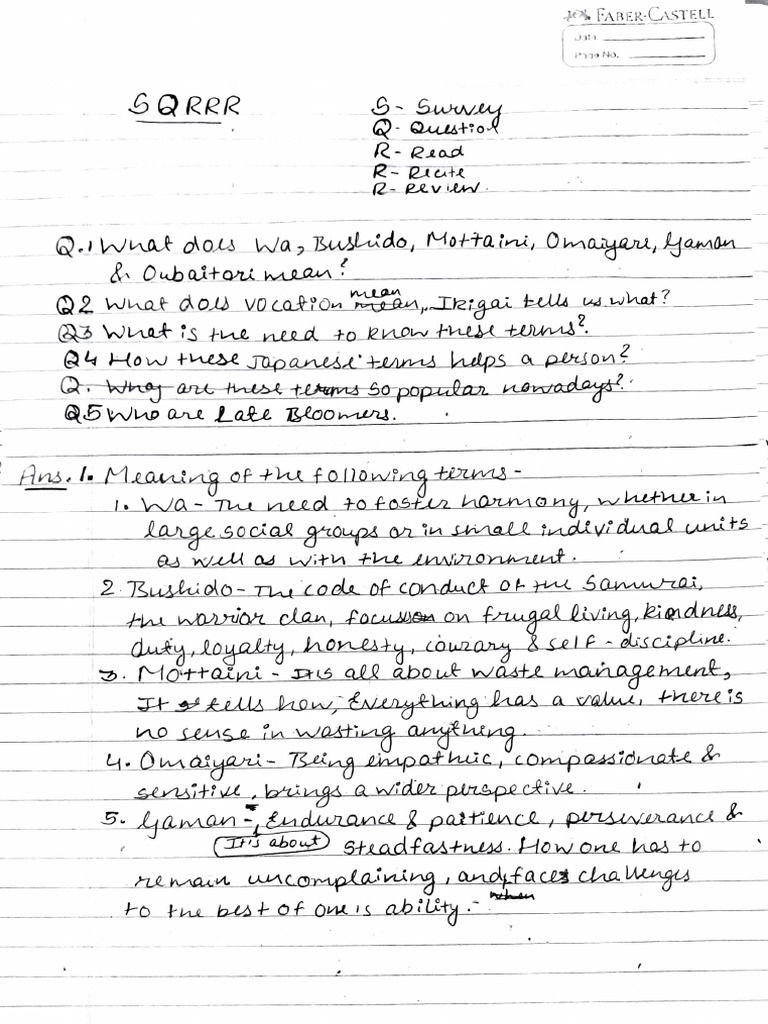 FABER-CASTELL
Date
Page No.
SQRRR
S - Survey
Q - Question
R - Read
R - Recite
R - Review.
Q.1 What does Wa, Bushido, Mottaini, Omaiyari, Gaman
& Oubaitori mean?
Q2 What does vocation mean, Ikigai tells us what?
Q3 What is the need to know these terms?
Q4 How these Japanese terms helps a person?
Q. Why are these terms so popular nowadays?
Q5 Who are Late Bloomers.
Ans. 1. Meaning of the following terms -
1. Wa - The need to foster harmony, whether in
large social groups or in small individual units
as well as with the environment.
2. Bushido - The code of conduct of the Samurai,
the warrior clan, focuses on frugal living, kindness,
duty, loyalty, honesty, courary & self - discipline.
3. Mottaini - It is all about waste management,
It tells how, Everything has a value, there is
no sense in wasting anything.
4. Omaiyari - Being empathic, compassionate &
sensitive, brings a wider perspective.
5. Gaman - It's about Endurance & paitience, perseverance &
steadfastness. How one has to
remain uncomplaining, and face challenges
to the best of one is ability.